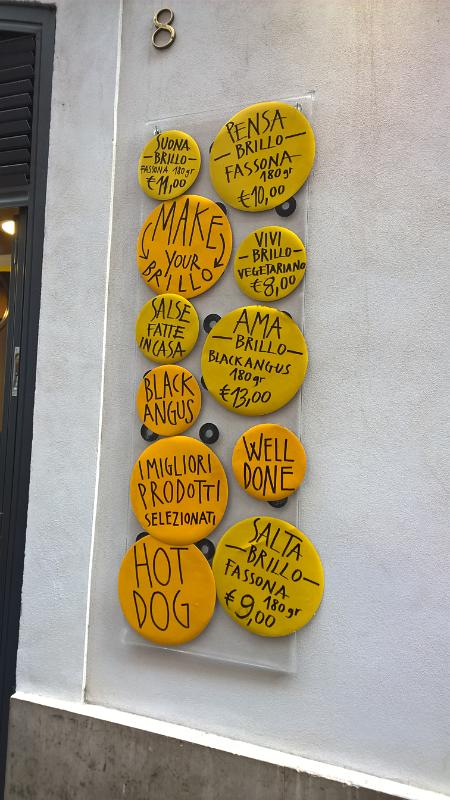 8
SUONA
BRILLO
FASSONA 180gr
€11,00
PENSA
BRILLO
FASSONA
180gr
€10,00
MAKE
YOUR
BRILLO
VIVI
BRILLO
VEGETARIANO
€8,00
SALSE
FATTE
IN CASA
AMA
BRILLO
BLACK ANGUS
180gr
€13,00
BLACK
ANGUS
WELL
DONE
I MIGLIORI
PRODOTTI
SELEZIONATI
HOT
DOG
SALTA
BRILLO
FASSONA
180gr
€9,00